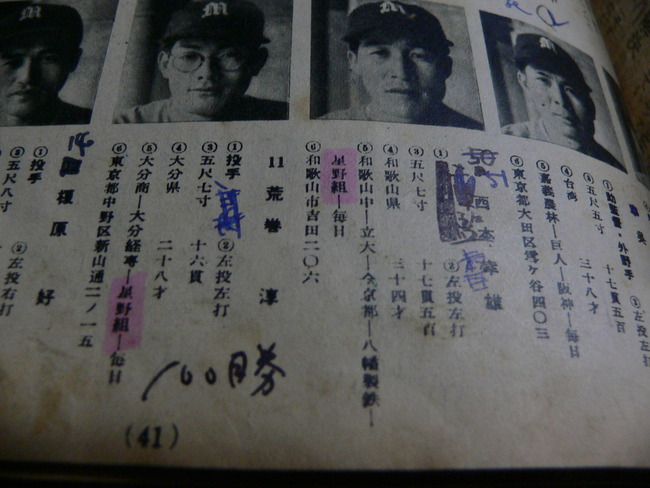 昌 呉
① 助監督・外野手 ② 左投左打
③ 五尺五寸 十七貫五百
④ 台湾 三十八才
⑤ 嘉義農林―巨人―阪神―毎日
⑥ 東京都大田区雪ヶ谷四〇三
50 51
西本幸雄
① ② 左投左打
③ 五尺七寸 十七貫五百
④ 和歌山県 三十四才
⑤ 和歌山中―立大―全京都―八幡製鉄―
星野組―毎日
⑥ 和歌山市吉田二〇六
11 荒巻 淳
① 投手 ② 左投左打
③ 五尺七寸 十六貫
④ 大分県 二十八才
⑤ 大分商―大分経専―星野組―毎日
⑥ 東京都中野区新山通二ノ一五
100勝
14 榎原 好
① 投手 ② 左投右打
③ 五尺八寸
(41)
M
M
M
M